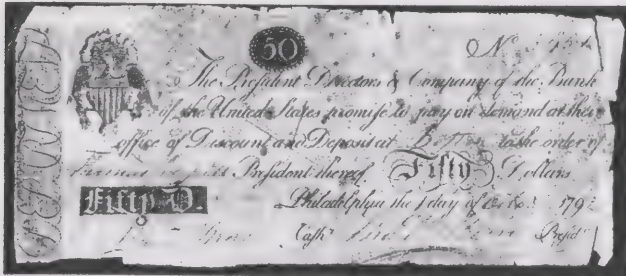 50 No
The President Directors & Company of the Bank
of the United States promise to pay on demand at their
office of Discount and Deposit at Boston to the order of
President thereof, Fifty Dollars
Fifty D. Philadelphia the 1 day of 179
Cash.r Presid.t